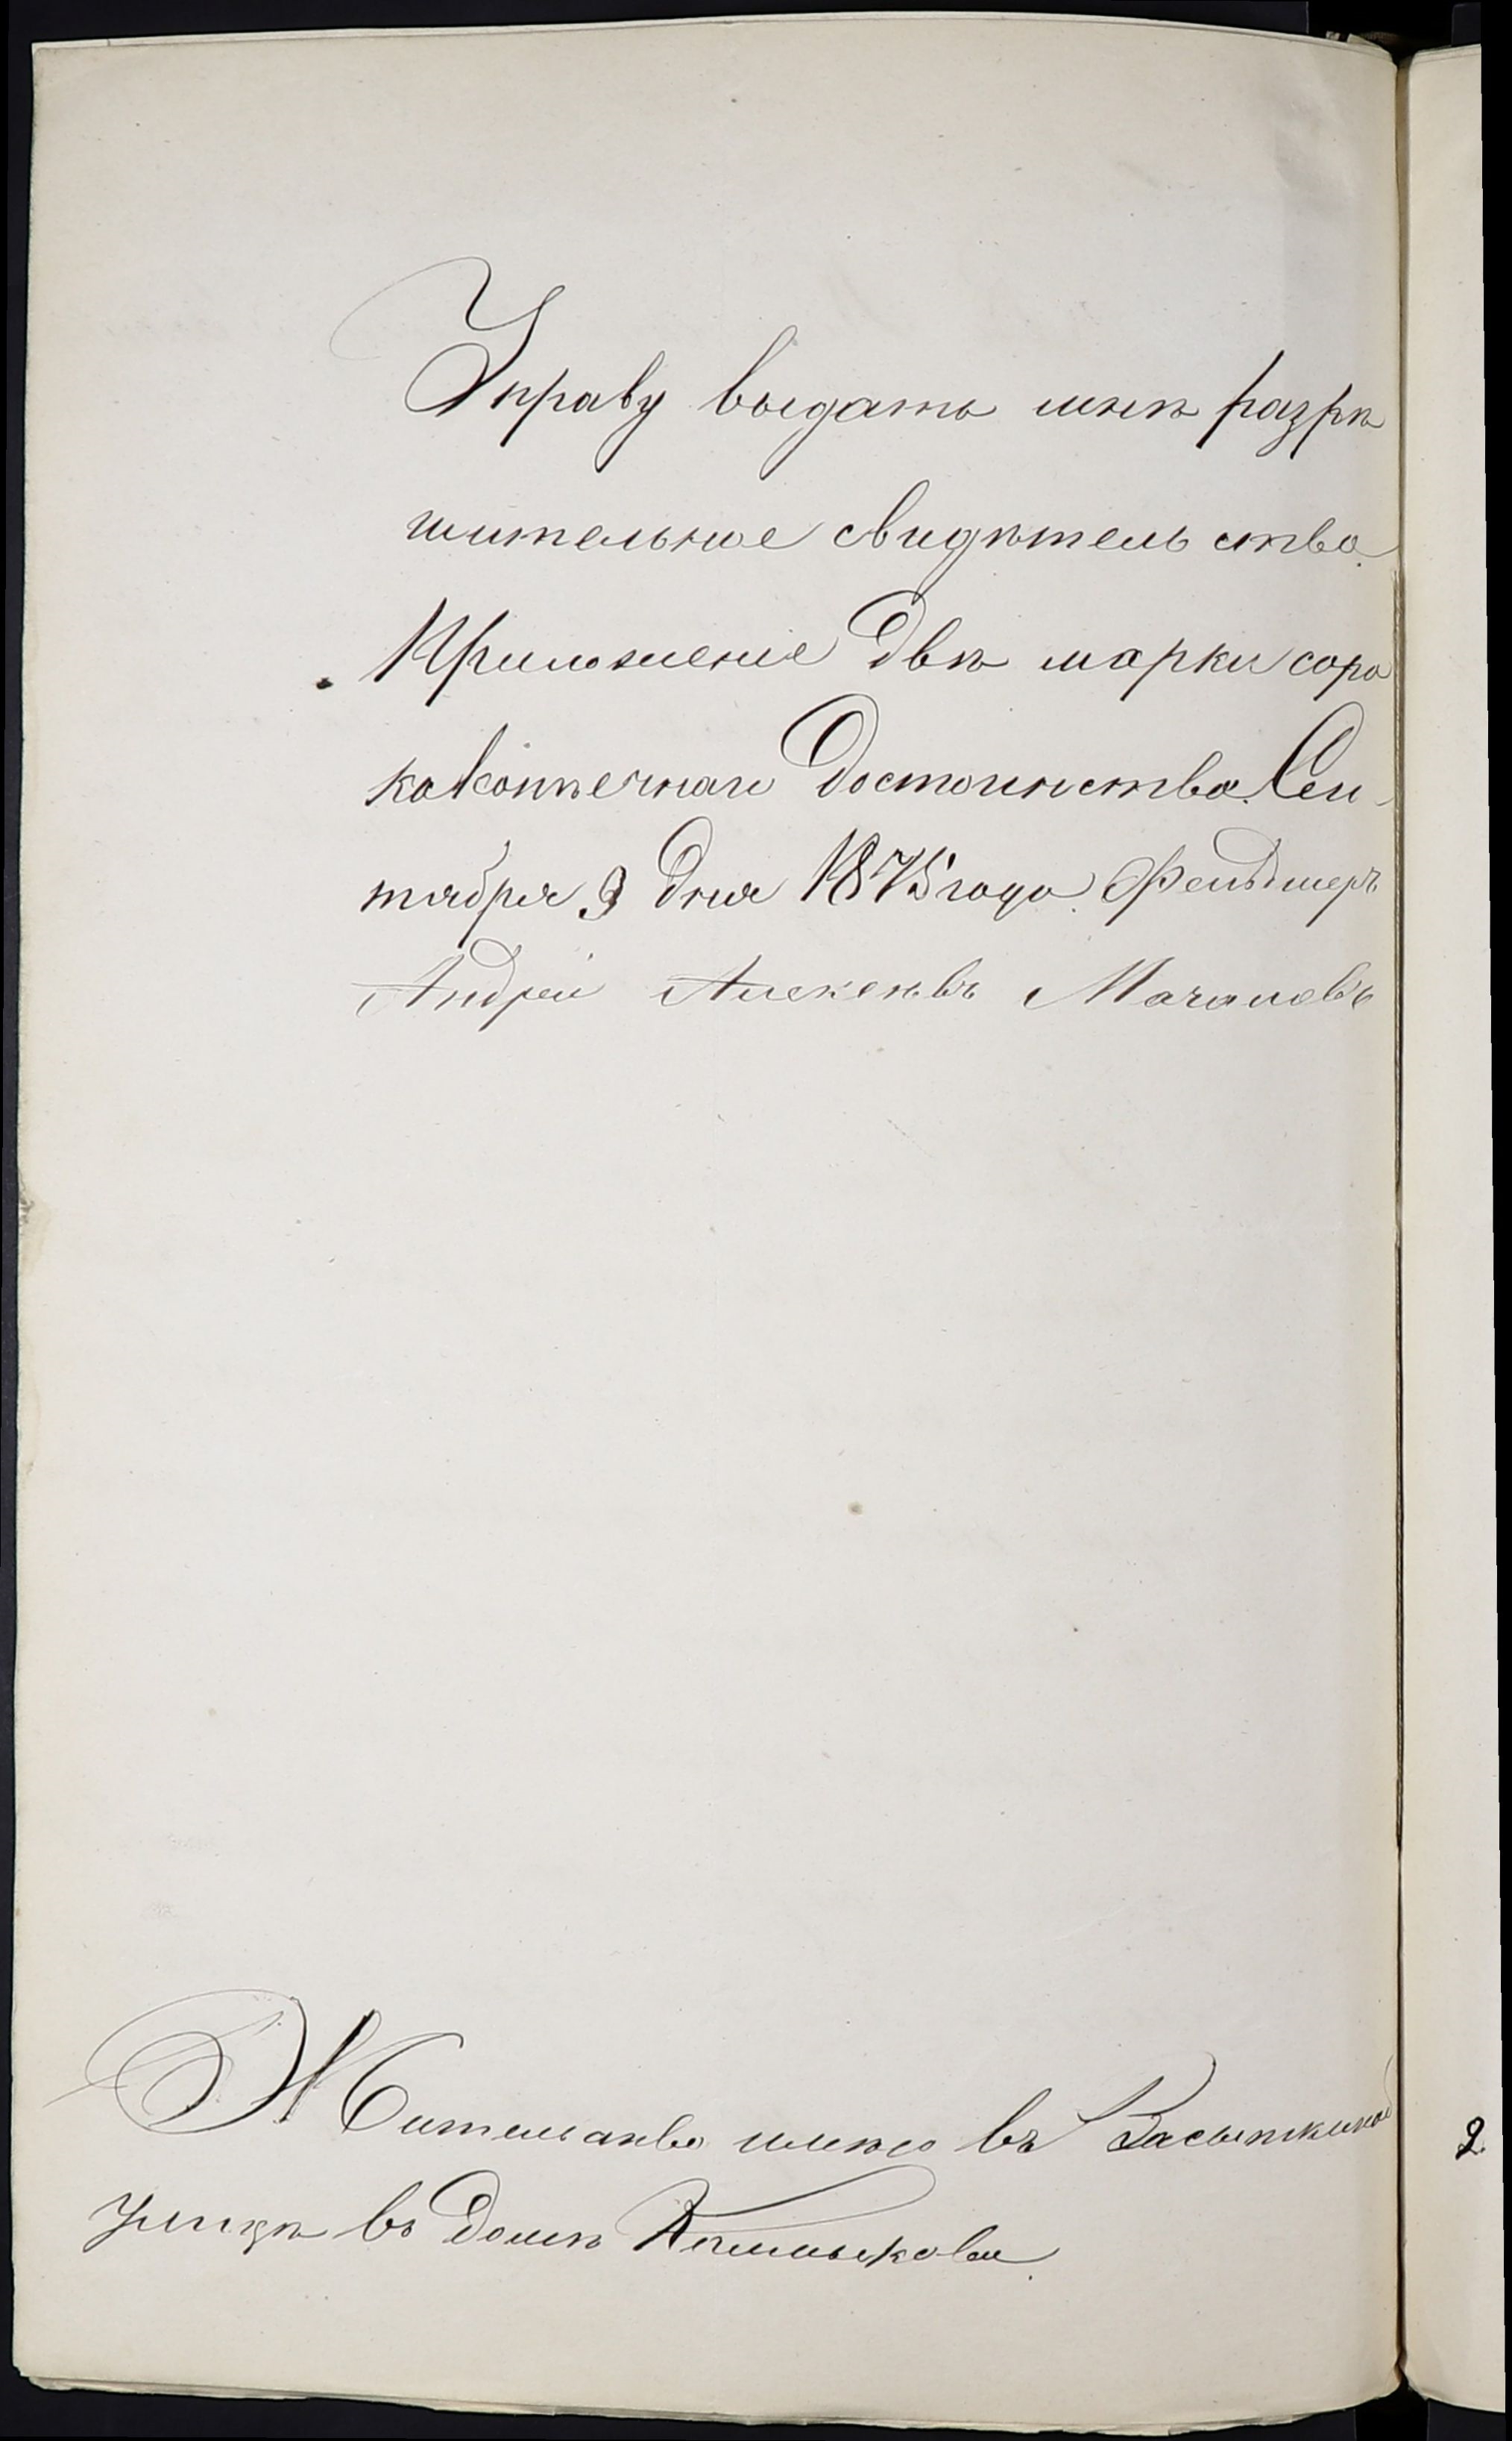 Управу выдать мнѣ разрѣ
шительное свидѣтель ство.
Приложеніе двѣ марки соро
кокопѣечнаго Достоинства. Сен-
тября 9 дня 1875 года. Фельдшеръ
Андрей Алексеевъ Мочаловъ
Жительство имѣю въ Засыпкиной
улицѣ въ домѣ
2.